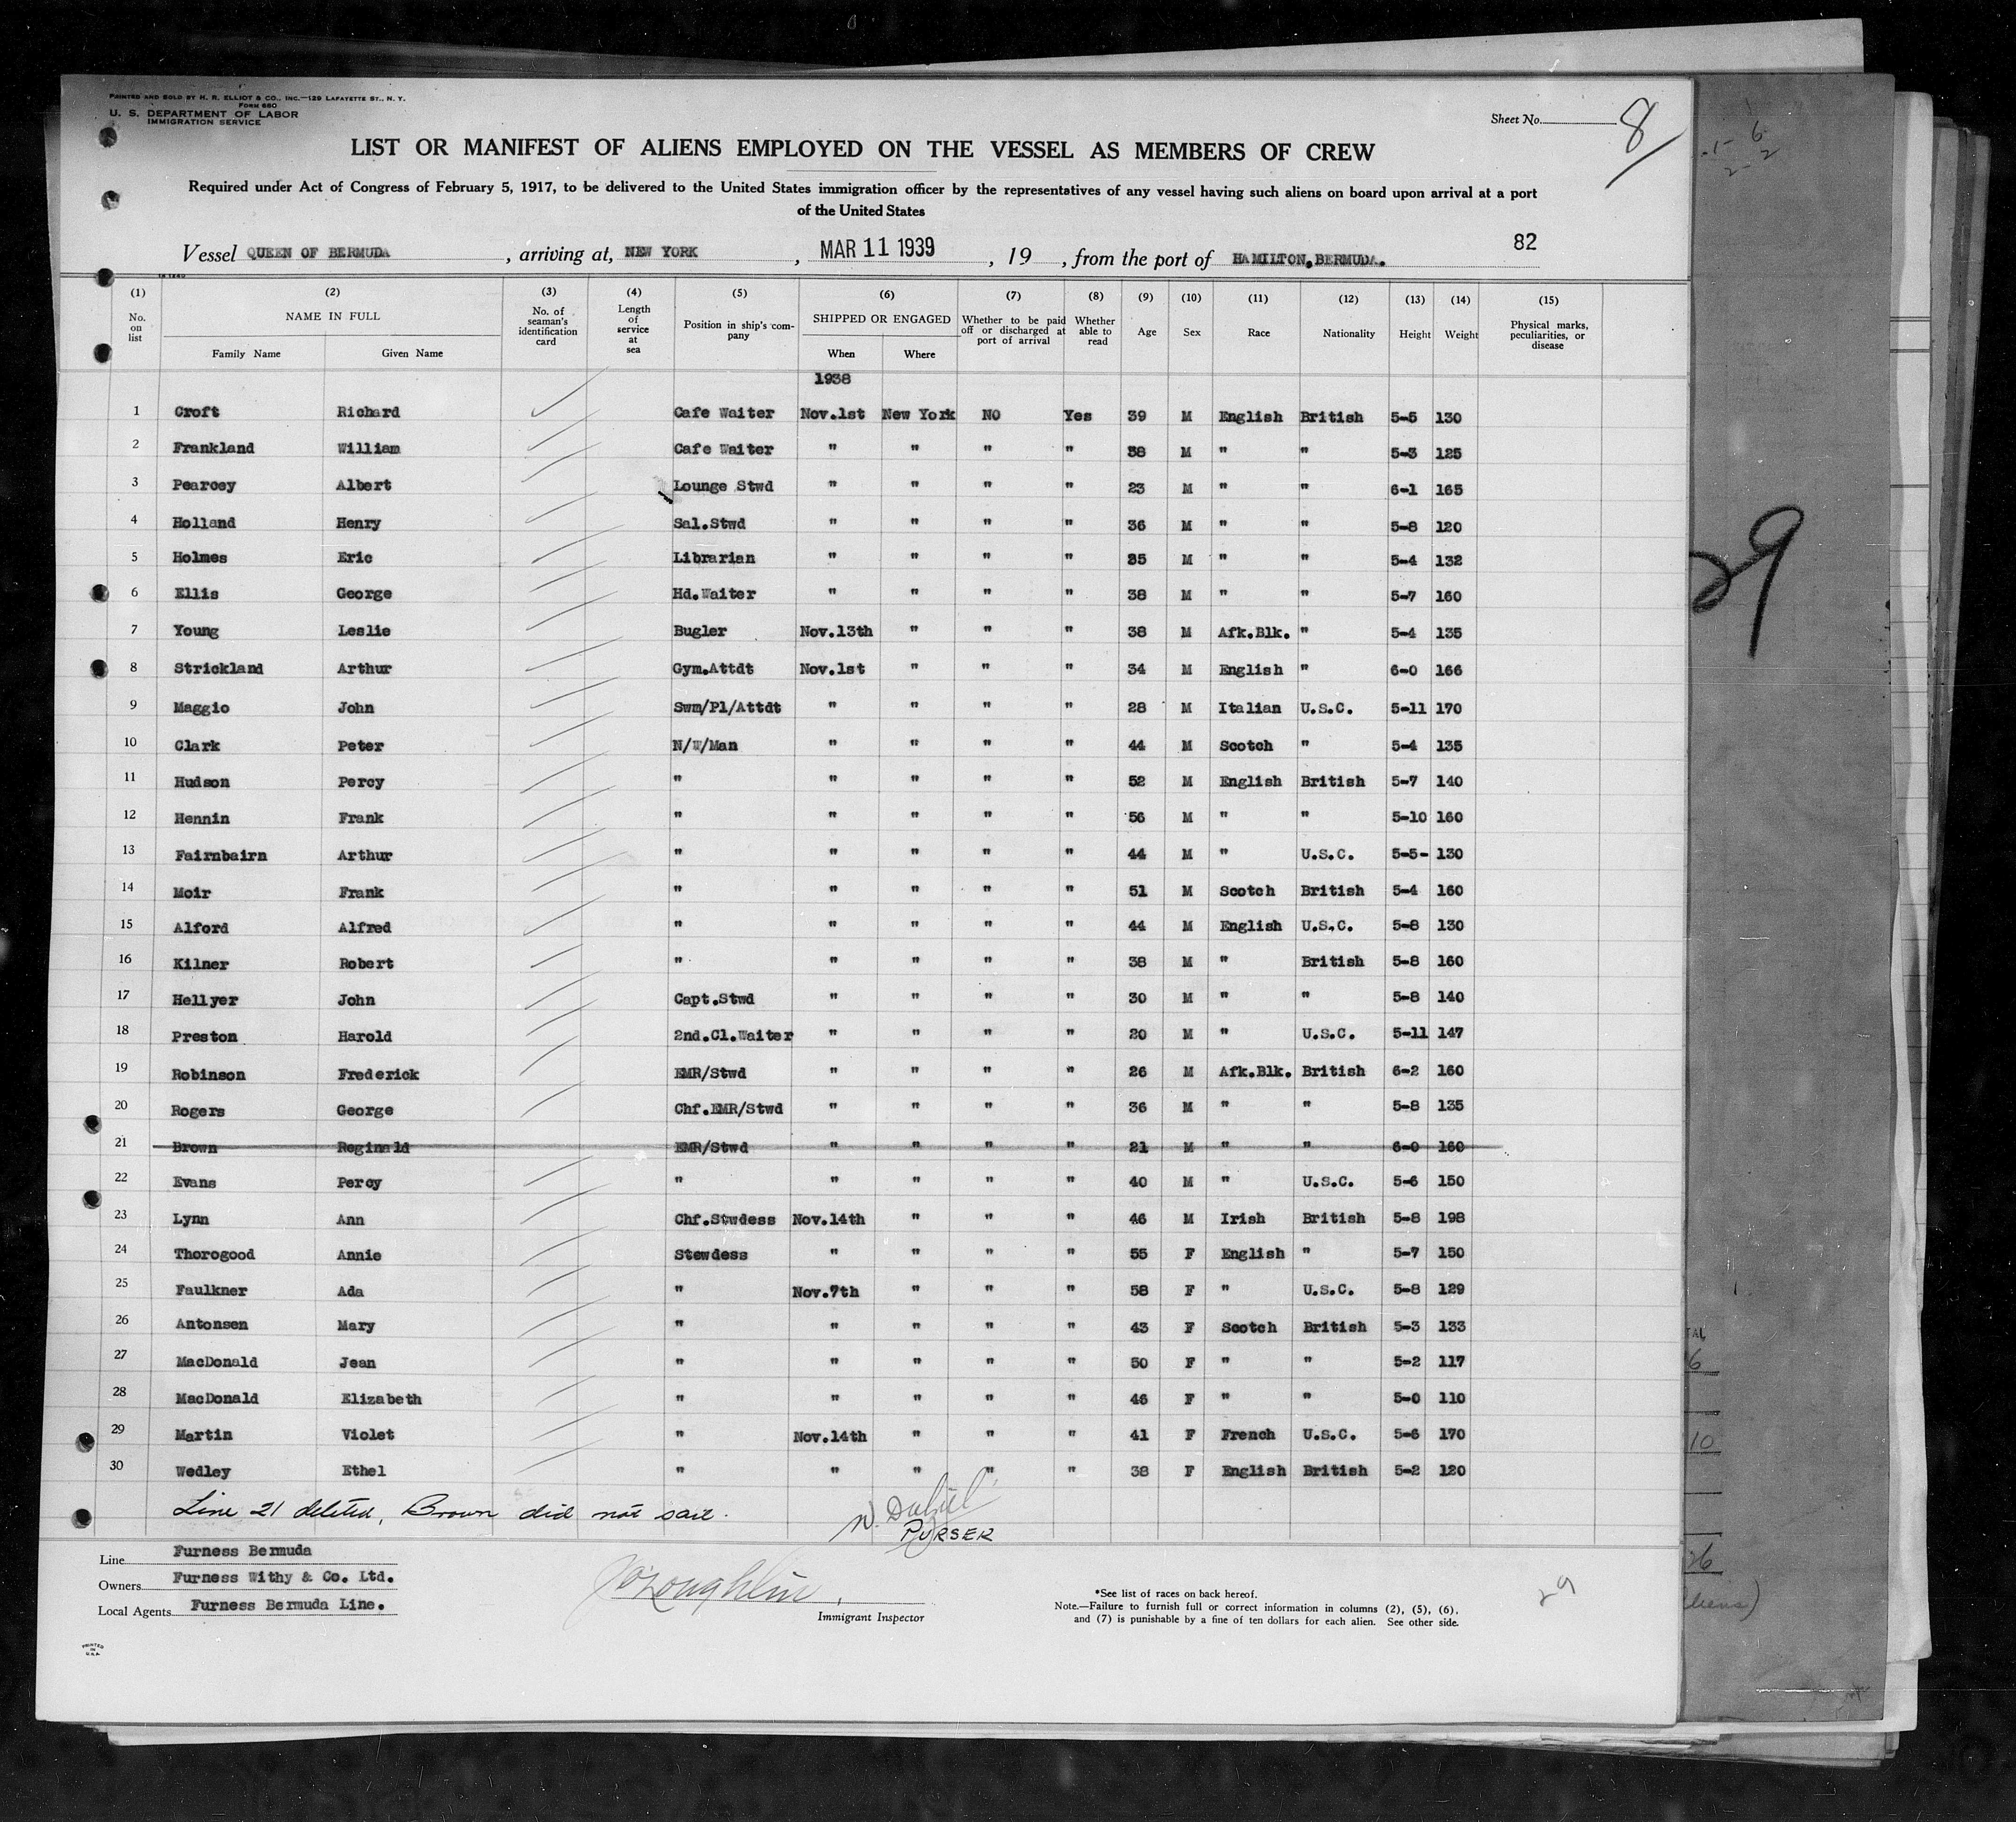 PRINTED AND SOLD BY H. R. ELLIOT & CO., INC.—129 LAFAYETTE ST., N. Y.
FORM 680
U. S. DEPARTMENT OF LABOR
IMMIGRATION SERVICE
Sheet No. 8
LIST OR MANIFEST OF ALIENS EMPLOYED ON THE VESSEL AS MEMBERS OF CREW
Required under Act of Congress of February 5, 1917, to be delivered to the United States immigration officer by the representatives of any vessel having such aliens on board upon arrival at a port
of the United States
82
Vessel QUEEN OF BERMUDA, arriving at, NEW YORK, MAR 11 1939, 19 , from the port of HAMILTON,BERMUDA.
(1) (2) (3) (4) (5) (6) (7) (8) (9) (10) (11) (12) (13) (14) (15)
No. on list NAME IN FULL Family Name Given Name No. of seaman's identification card Length of service at sea Position in ship's company SHIPPED OR ENGAGED When Where Whether to be paid off or discharged at port of arrival Whether able to read Age Sex Race Nationality Height Weight Physical marks, peculiarities, or disease
1938
1 Croft Richard Cafe Waiter Nov.1st New York NO Yes 39 M English British 5-5 130
2 Frankland William Cafe Waiter " " " " 38 M " " 5-3 125
3 Pearcey Albert Lounge Stwd " " " " 23 M " " 6-1 165
4 Holland Henry Sal.Stwd " " " " 36 M " " 5-8 120
5 Holmes Eric Librarian " " " " 35 M " " 5-4 132
6 Ellis George Hd.Waiter " " " " 38 M " " 5-7 160
7 Young Leslie Bugler Nov.13th " " " 38 M Afk.Blk. " 5-4 135
8 Strickland Arthur Gym.Attdt Nov.1st " " " 34 M English " 6-0 166
9 Maggio John Swm/Pl/Attdt " " " " 28 M Italian U.S.C. 5-11 170
10 Clark Peter N/W/Man " " " " 44 M Scotch " 5-4 135
11 Hudson Percy " " " " " 52 M English British 5-7 140
12 Hennin Frank " " " " " 56 M " " 5-10 160
13 Fairnbairn Arthur " " " " " 44 M " U.S.C. 5-5- 130
14 Moir Frank " " " " " 51 M Scotch British 5-4 160
15 Alford Alfred " " " " " 44 M English U.S.C. 5-8 130
16 Kilner Robert " " " " " 38 M " British 5-8 160
17 Hellyer John Capt.Stwd " " " " 30 M " " 5-8 140
18 Preston Harold 2nd.Cl.Waiter " " " " 20 M " U.S.C. 5-11 147
19 Robinson Frederick EMR/Stwd " " " " 26 M Afk.Blk. British 6-2 160
20 Rogers George Chf.EMR/Stwd " " " " 36 M " " 5-8 135
21 Brown Reginald EMR/Stwd " " " " 21 M " " 6-0 160
22 Evans Percy " " " " " 40 M " U.S.C. 5-6 150
23 Lynn Ann Chf.Stwdess Nov.14th " " " 46 M Irish British 5-8 198
24 Thorogood Annie Stewdess " " " " 55 F English " 5-7 150
25 Faulkner Ada " Nov.7th " " " 58 F " U.S.C. 5-8 129
26 Antonsen Mary " " " " " 43 F Scotch British 5-3 133
27 MacDonald Jean " " " " " 50 F " " 5-2 117
28 MacDonald Elizabeth " " " " " 46 F " " 5-0 110
29 Martin Violet " Nov.14th " " " 41 F French U.S.C. 5-6 170
30 Wedley Ethel " " " " " 38 F English British 5-2 120
Line 21 deleted, Brown did not sail.
PURSER
Line Furness Bermuda
Owners Furness Withy & Co. Ltd.
Local Agents Furness Bermuda Line.
Immigrant Inspector
*See list of races on back hereof.
Note.—Failure to furnish full or correct information in columns (2), (5), (6),
and (7) is punishable by a fine of ten dollars for each alien. See other side.
29
PRINTED IN U.S.A.
29